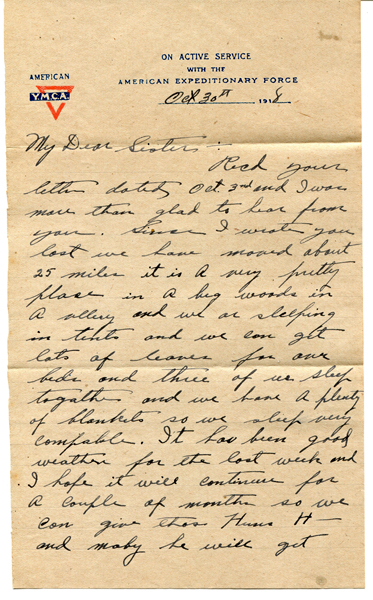 ON ACTIVE SERVICE
WITH THE
AMERICAN EXPEDITIONARY FORCE
AMERICAN
Y.M.C.A.
Oct 30th 1918
My Dear Sisters:
Recd your
letter dated, Oct. 3rd and I was
more than glad to hear from
you. Sinse I wrote you
last we have moved about
25 miles it is a very pretty
plase in a big woods in
a vallery and we ar sleeping
in tents and we can get
lots of leaves for our
beds and three of us sleep
togather and we have a plenty
of blankets so we sleep very
compfable. It has been good
weather for the last week and
I hope it will continue for
a couple of months so we
can give thos Huns H—
and maby he will get